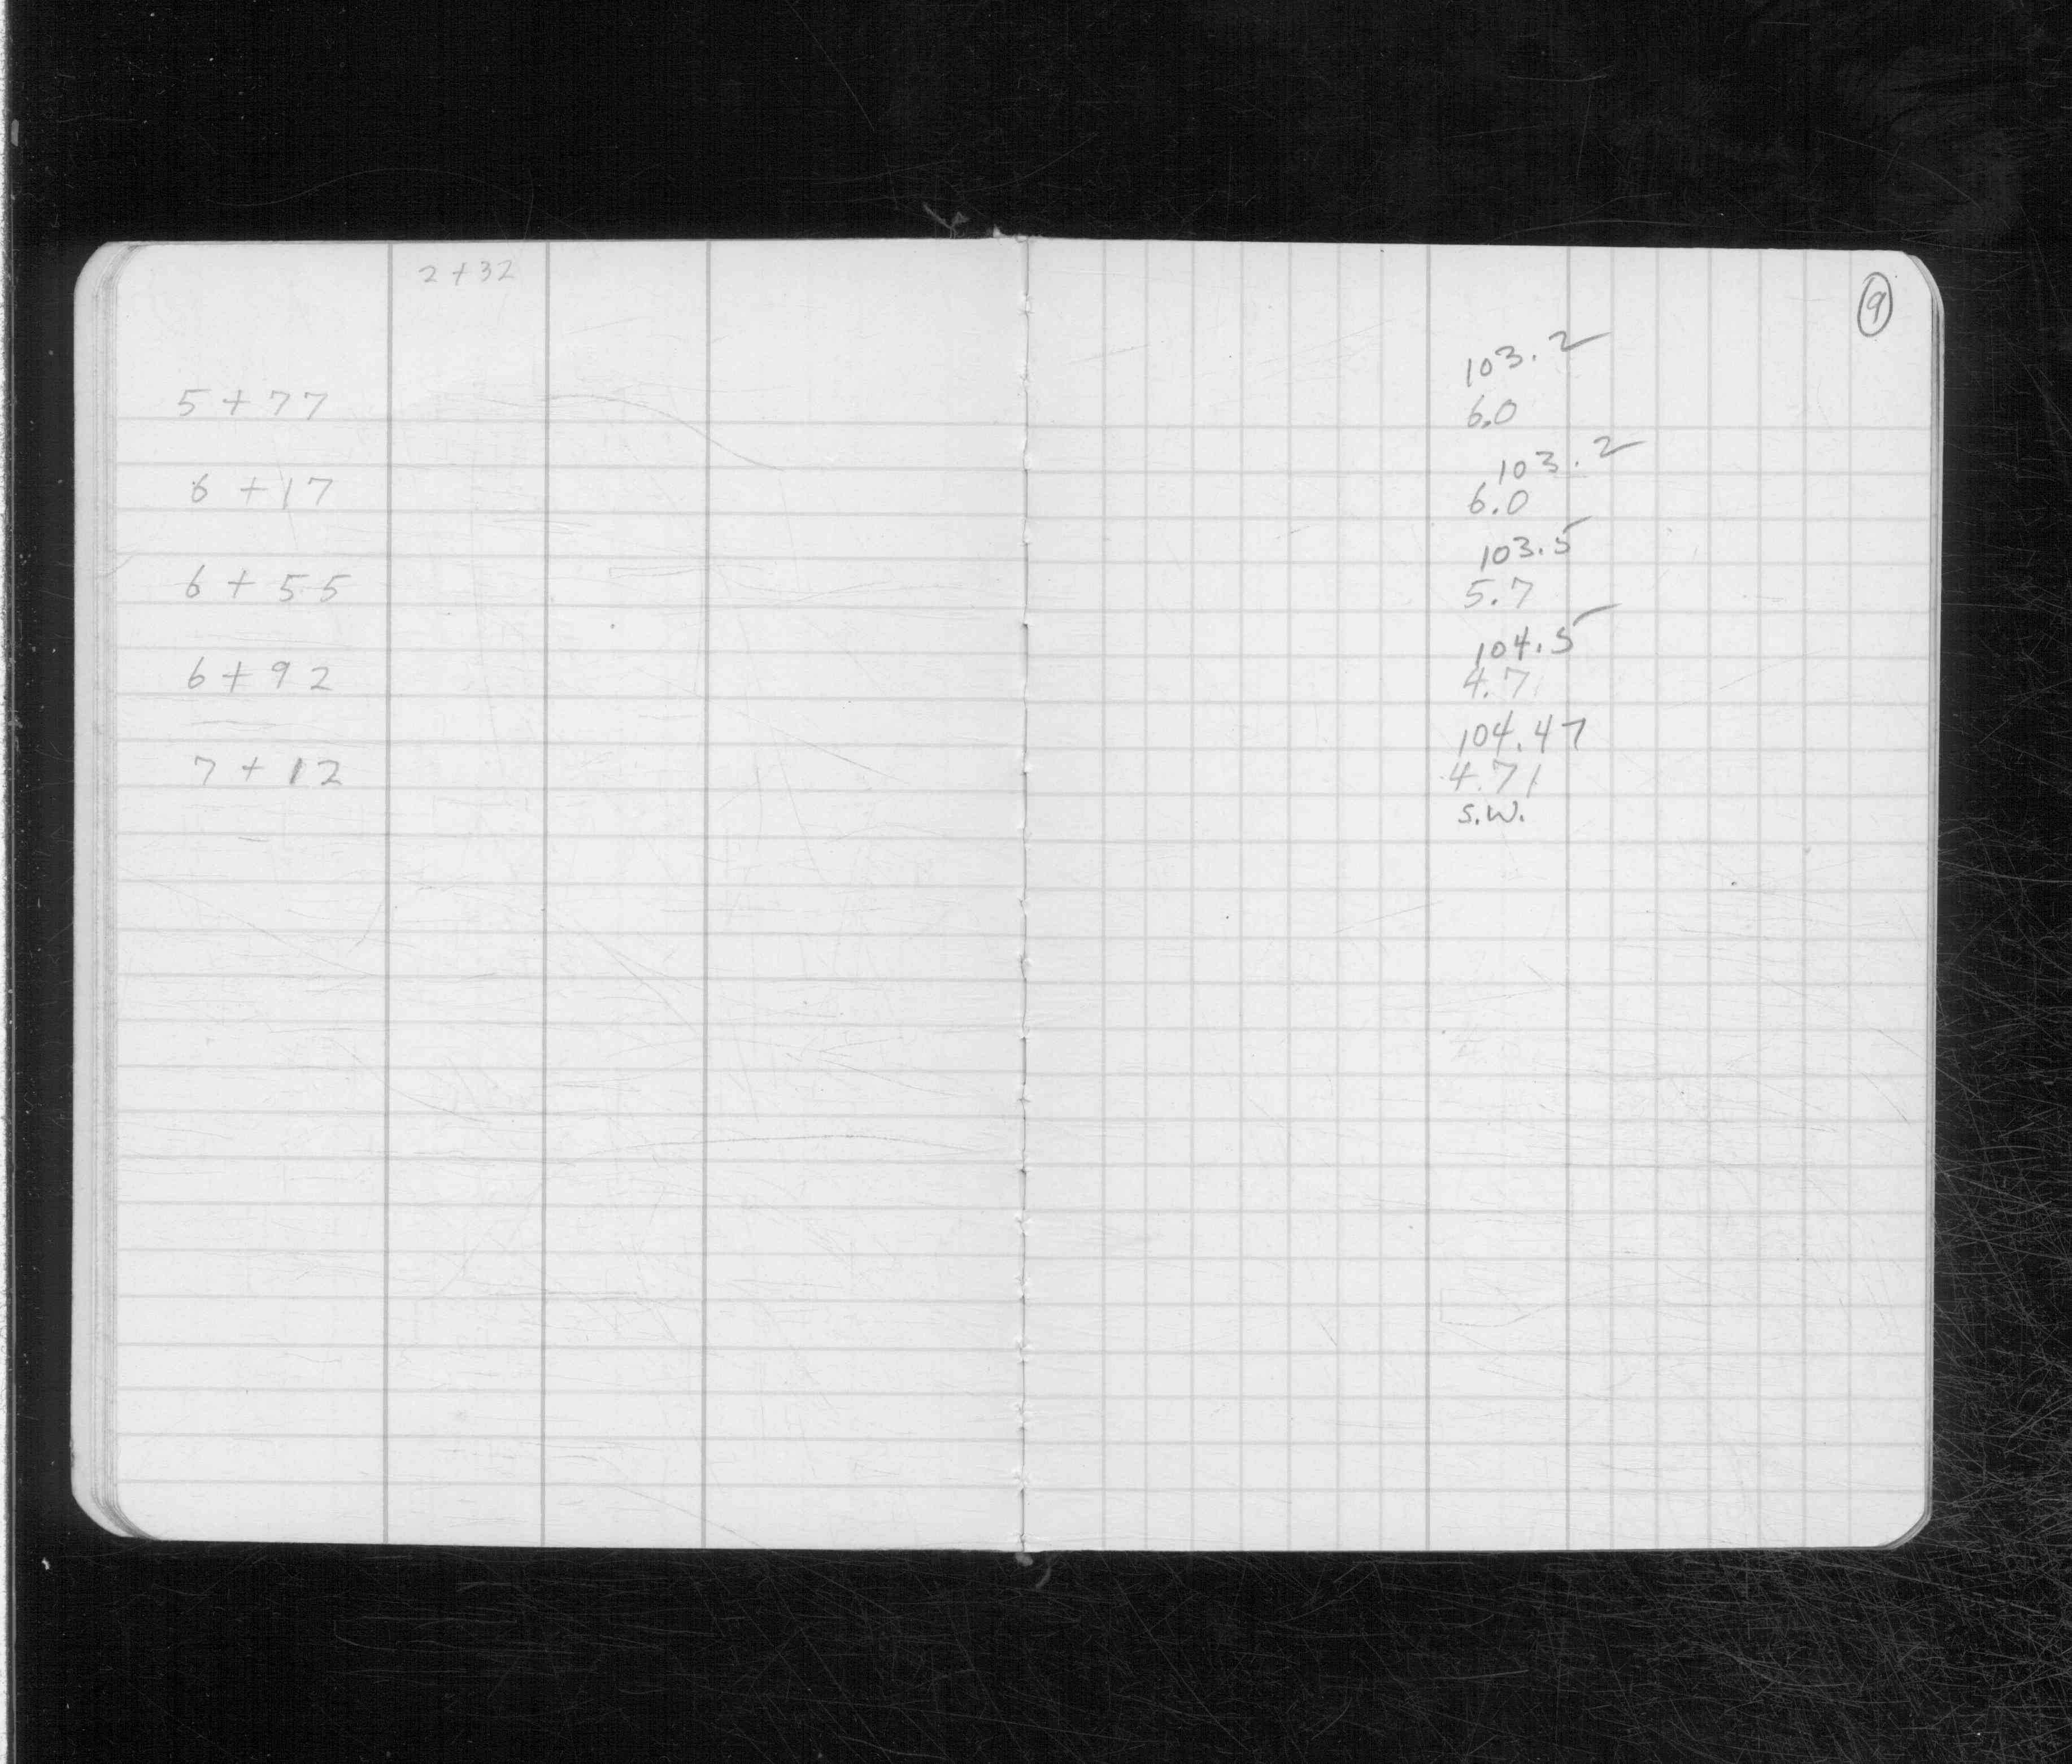 2+32
5+77
6+17
6+55
6+92
7+12
9
103.2
6.0
103.2
6.0
103.5
5.7
104.5
4.7
104.47
4.71
S.W.